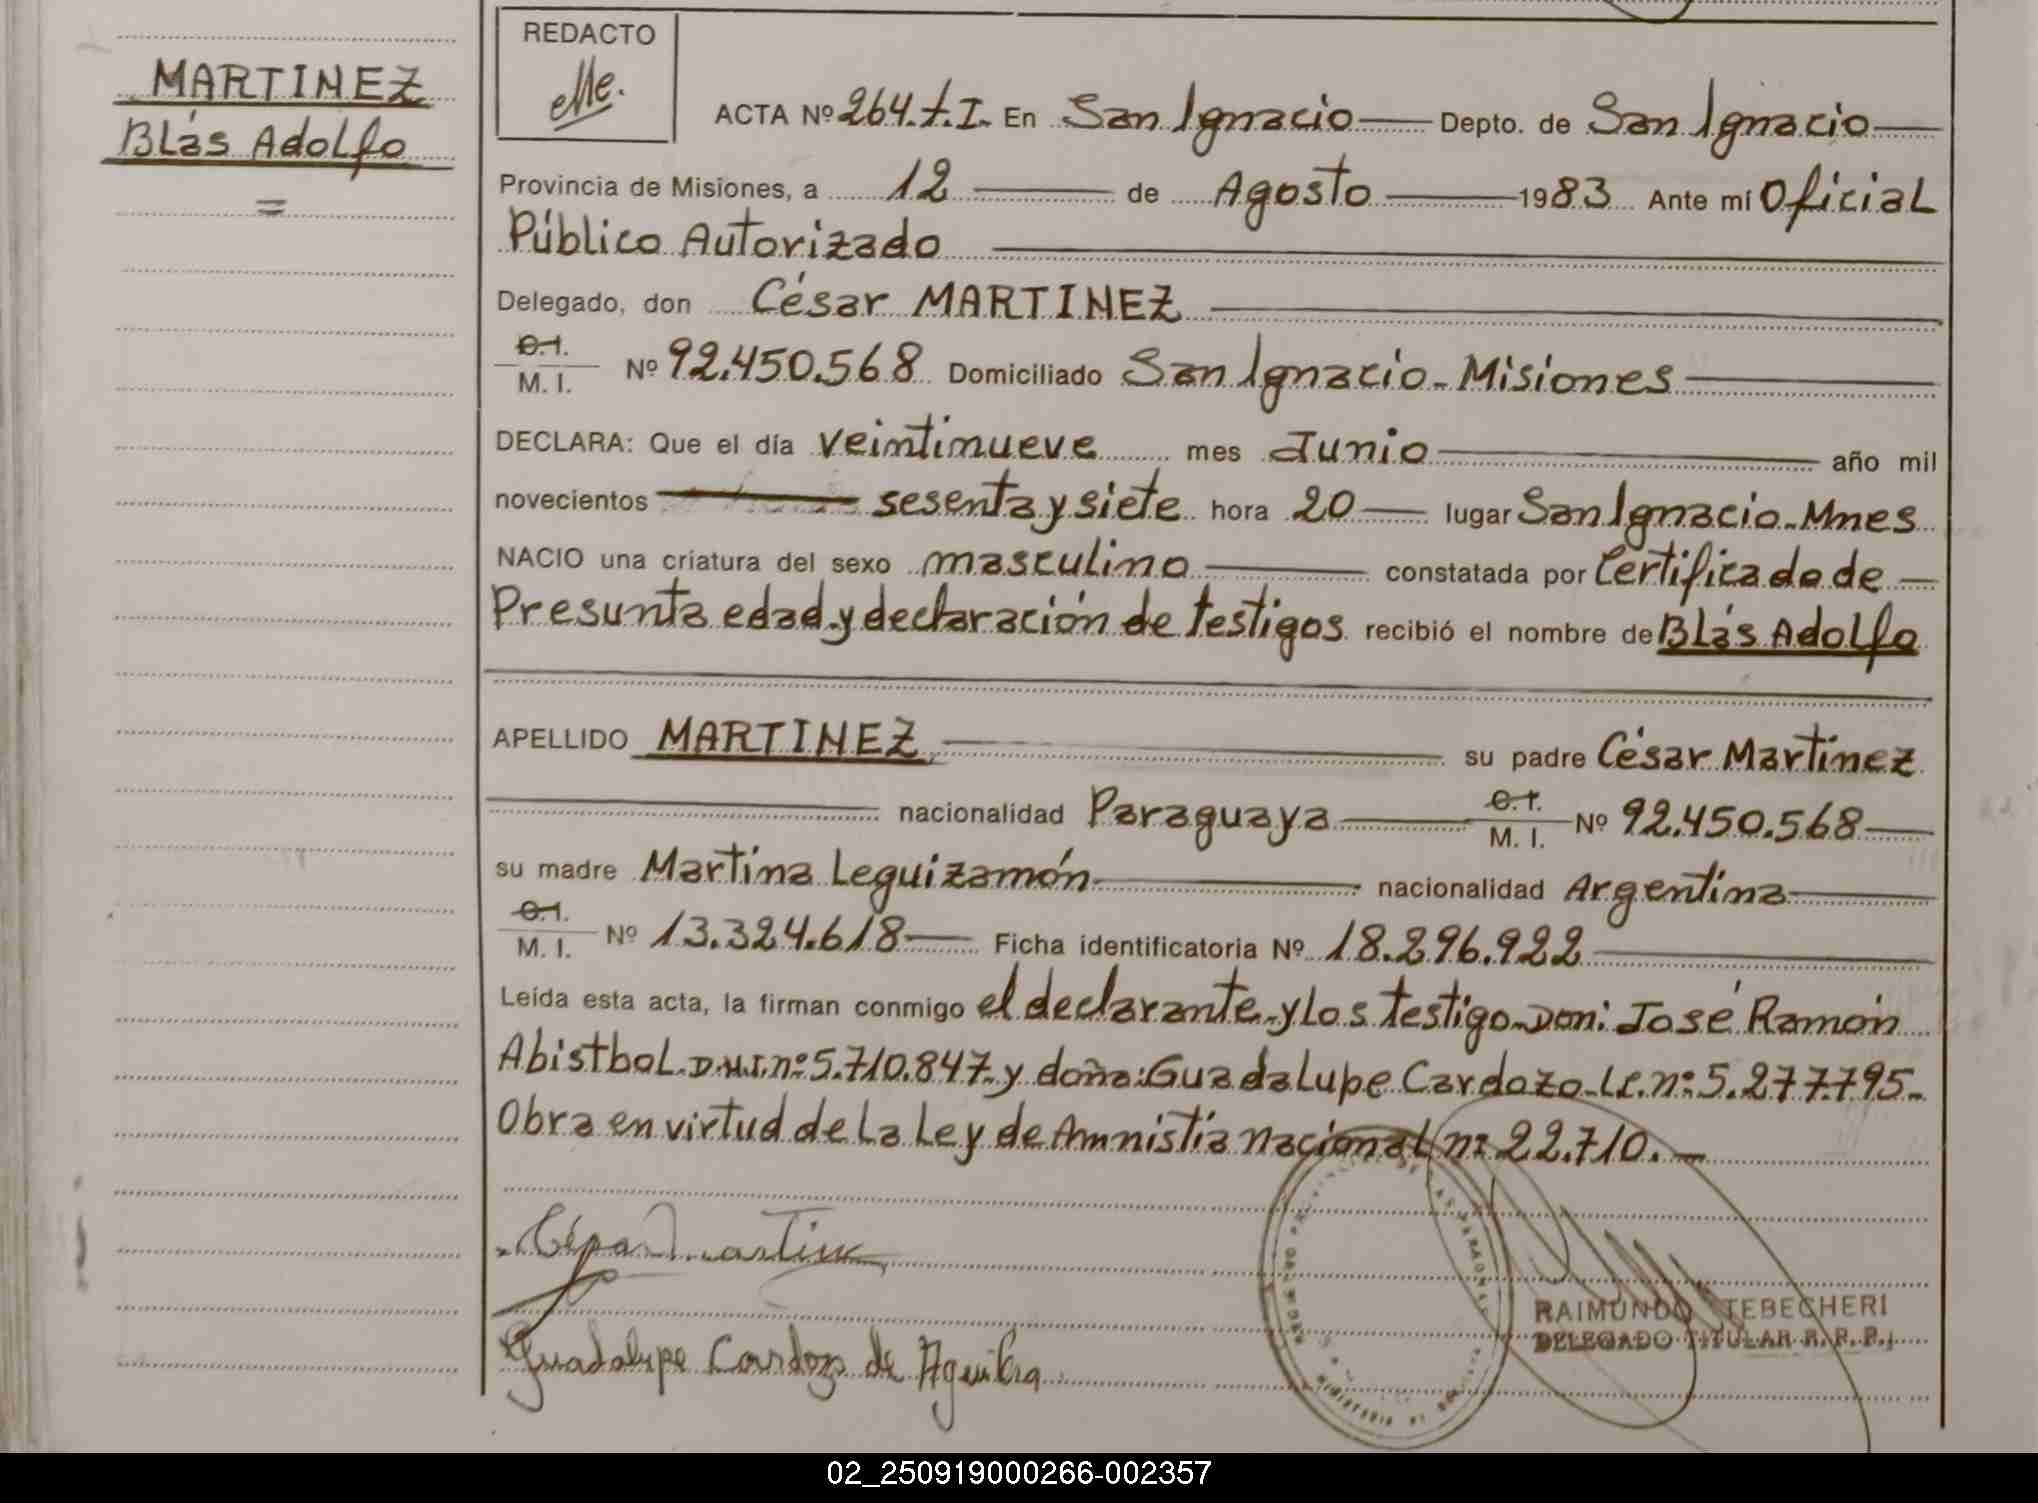 MARTINEZ
Blás Adolfo
=
REDACTO
ACTA Nº 264. t. I. En San Ignacio Depto. de San Ignacio
Provincia de Misiones, a 12 de Agosto 1983 Ante mí Oficial
Público Autorizado
Delegado, don César MARTINEZ
C.I.
M. I. Nº 92.450.568 Domiciliado San Ignacio - Misiones
DECLARA: Que el día veintinueve mes Junio año mil
novecientos sesenta y siete hora 20 lugar San Ignacio - Mnes
NACIO una criatura del sexo masculino constatada por Certificado de
Presunta edad y declaración de testigos recibió el nombre de Blás Adolfo
APELLIDO MARTINEZ su padre César Martínez
nacionalidad Paraguaya C.I. M. I. Nº 92.450.568
su madre Martina Leguizamón nacionalidad Argentina
C.I.
M. I. Nº 13.324.618 Ficha identificatoria Nº 18.296.922
Leída esta acta, la firman conmigo el declarante y los testigo Don: José Ramón
Abistbol D.N.I. nº 5.710.847 y doña: Guadalupe Cardozo L.C. nº 5.277.795.
Obra en virtud de la Ley de Amnistía nacional nº 22.710.
César Martinez
Guadalupe Cardozo de Aguilra
RAIMUNDO TEBECHERI
DELEGADO TITULAR R. P. P.
02_250919000266-002357